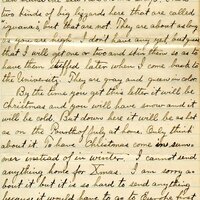 two kinds of big lizards here that are called
"iguana's" but that are not. They are about as long
as you are high. I don't have any yet but guess
that I will get one or two and skin them so as to
have them stuffed later when I come back to
the University. They are gray and green in color.
By the time you get this letter it will be
Christmas and you will have snow and it
will be cold. But down here it will be as hot
as on the Fourth of July at home. Only think
about it. To have Christmas come in sum-
mer instead of in winter. I cannot send
anything home for Xmas. I am sorry as
about it but it is so hard to send anything
because it would have to go to first